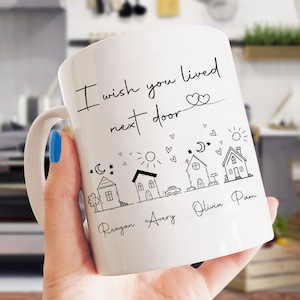 I wish you lived
next door
Reagan Avery Olivia Pam